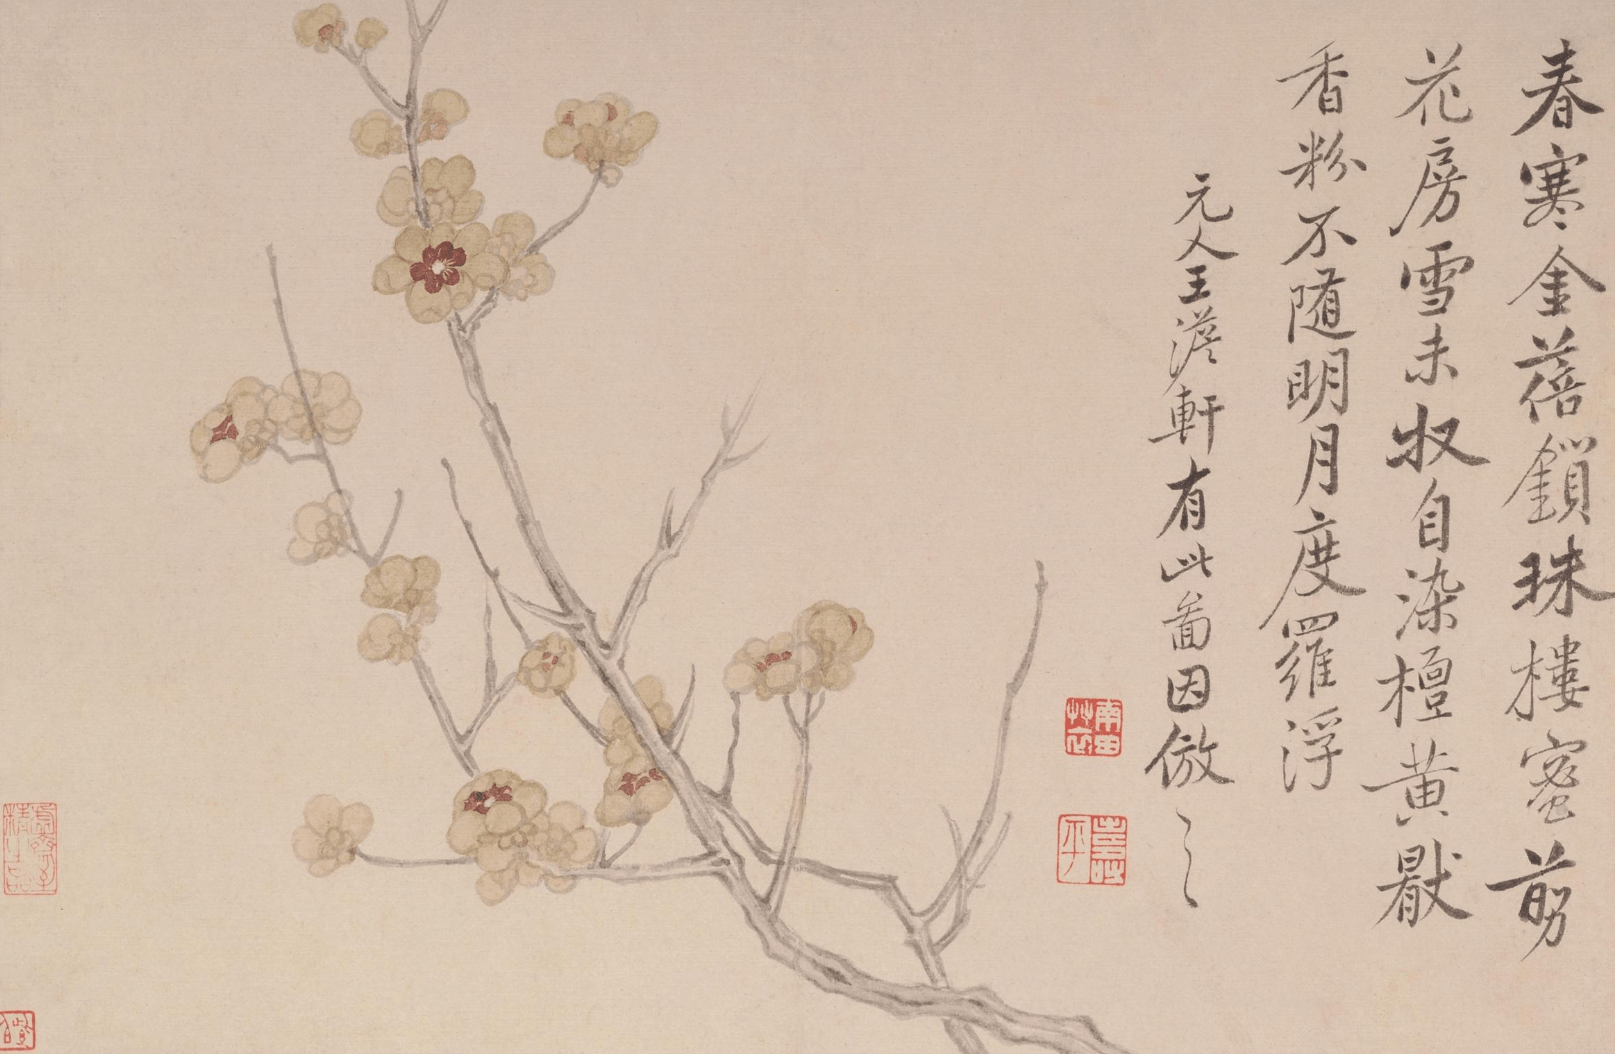 春寒金蓓鎖珠樓蜜剪
花房雪未收自染檀黃猒
香粉不隨明月度羅浮
元人王澹軒有此啚因倣之
南田草衣
壽平